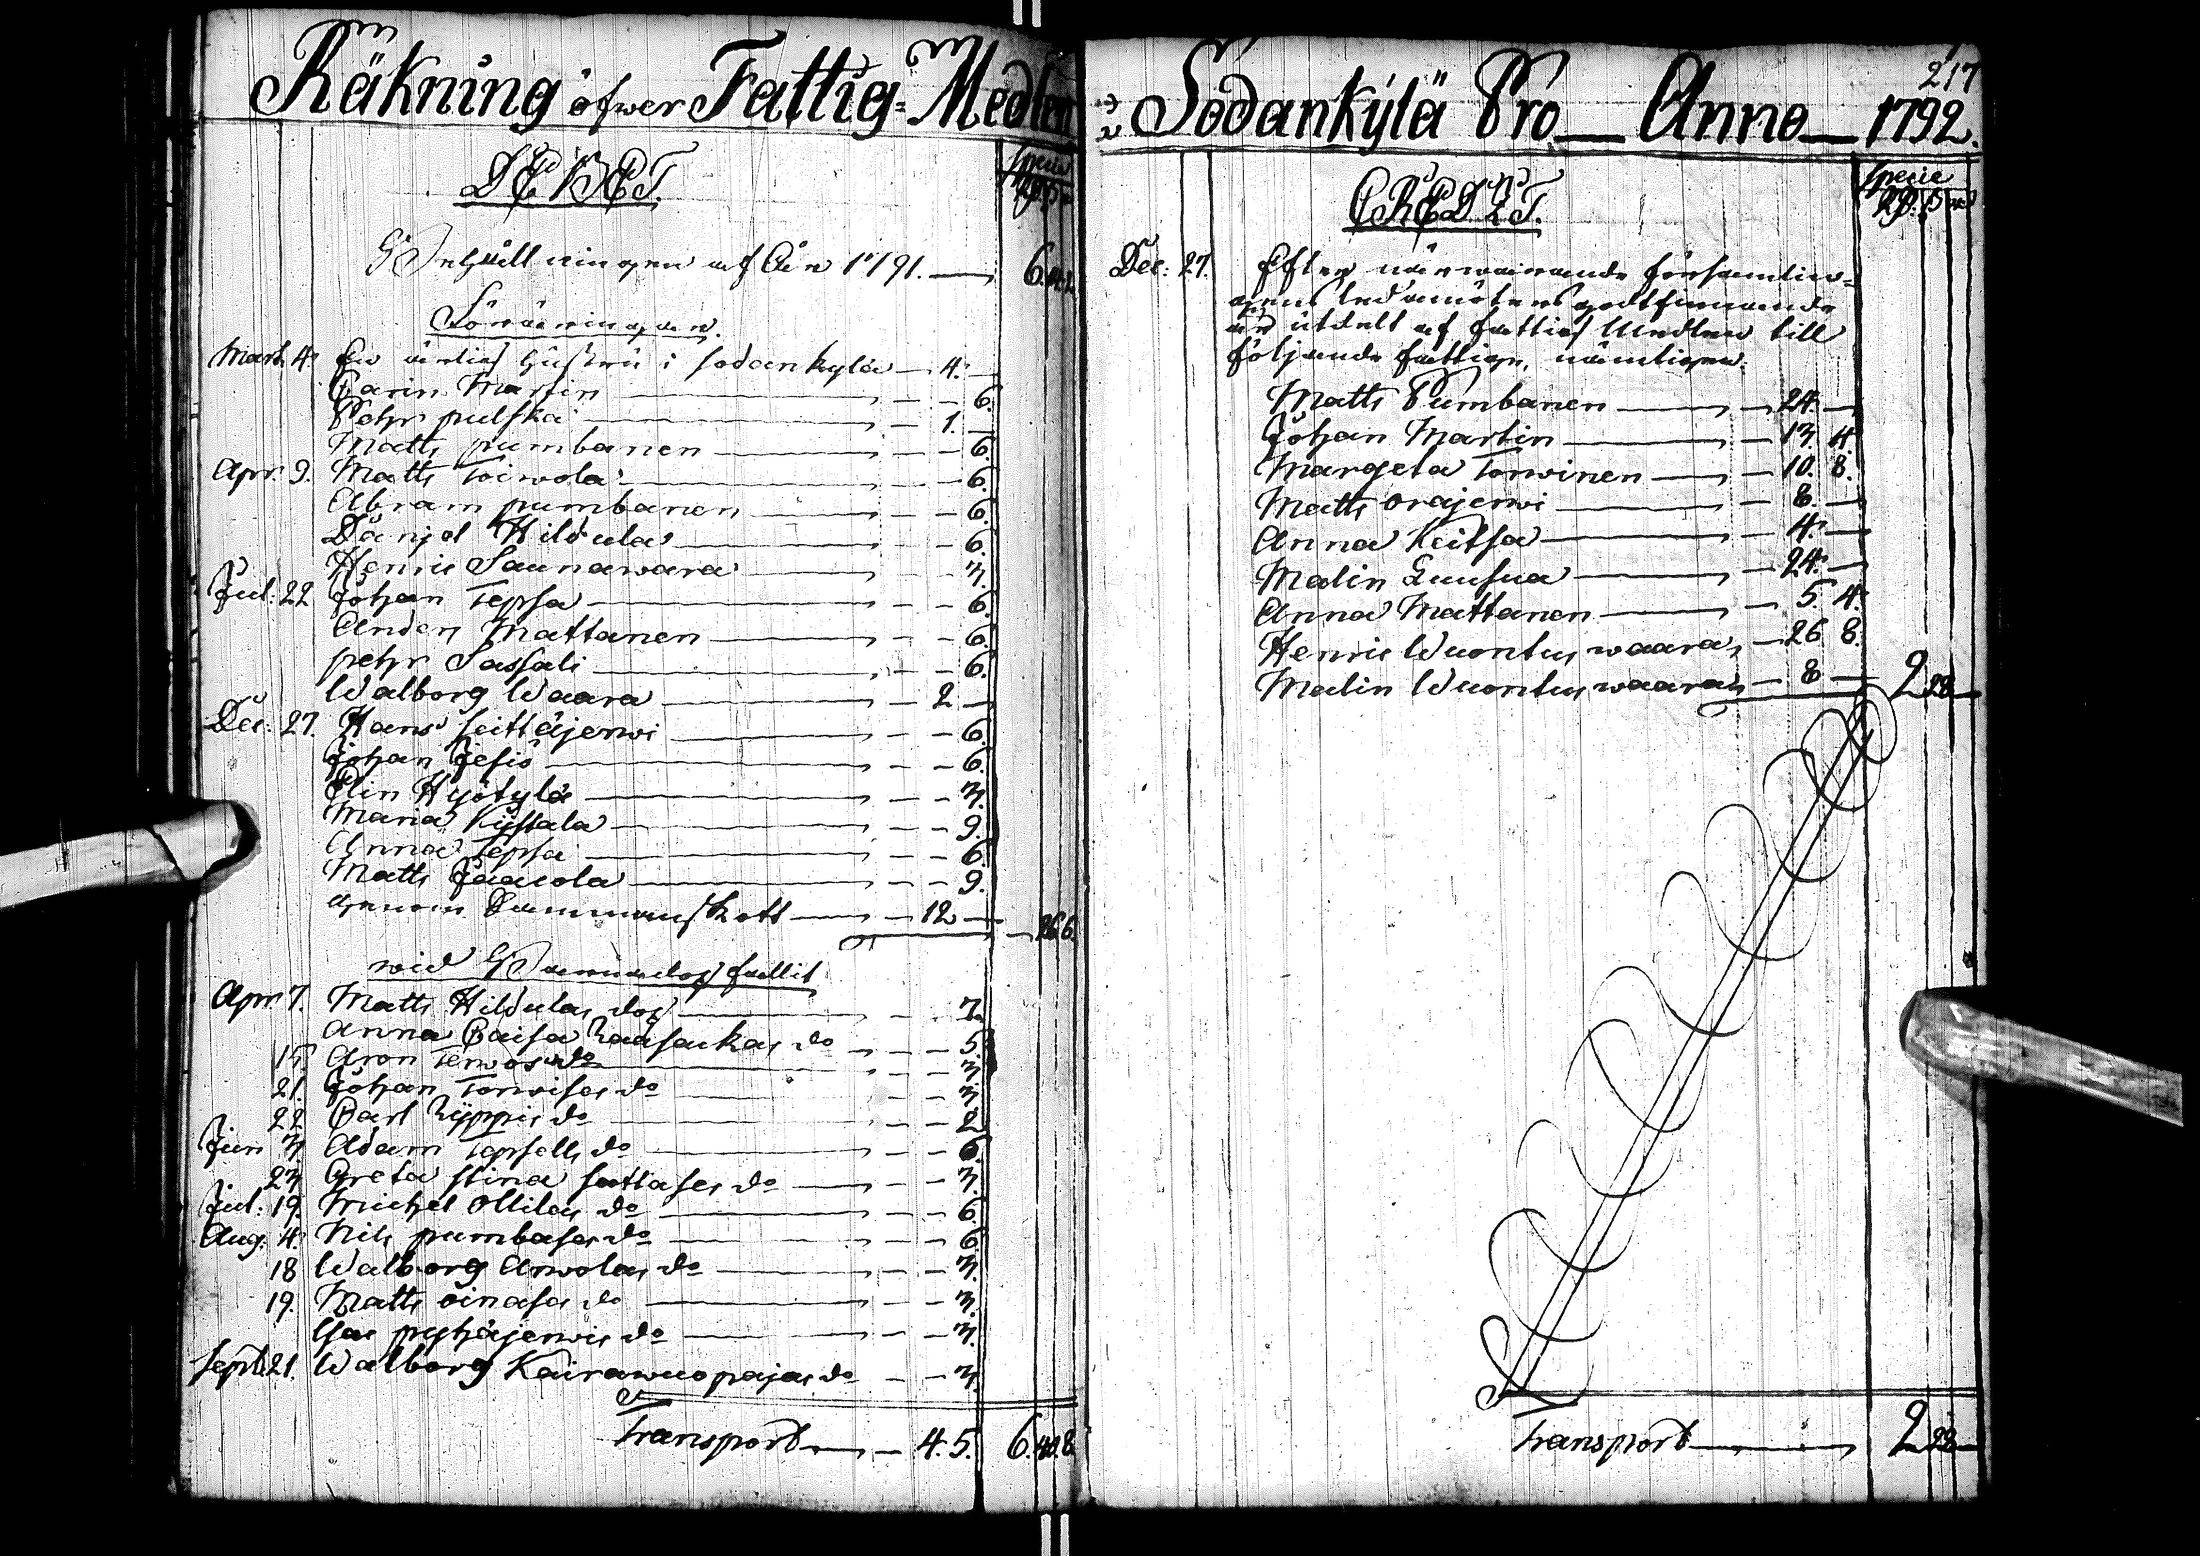 Räkning öfwer Fattig=Medlen
DEBET.
Specie
Behållningen af Åhr 1791. 6.
Föräringar.
Mart. 4. En ärlig hustru i Sodankylä 4.
Carin Martin 6.
Pehr pulska 1.
Matts pumbanen 6.
Apr. 9. Matts Toiwola 6.
Abram pumbanen 6.
Daniel Hildula 6.
Henric Saunawara 3.
Jul. 22 Johan Tepsa 6.
Anders Mattanen 6.
pehr Sassali 6.
Walborg Waara 2
Dec. 27. Hans seittäjerwi 6.
Johan Jesiö 6.
Elin Hyötylä 3.
Maria Kÿstala 9.
Anna Tepsa 6.
Matts Jaacola 9.
genom Sammanskott 12 26.6.
wid Barnadop fallit
Apr. 7. Matts Hildulas dop 7.
Anna Caisa Raasakas do 5
15. Aron Terwos do 3.
21. Johan Torwises do 3.
22 Carl Rÿppis do 2
Jun 3. Adam Tepsells do 6.
23 Greta Stina sattases do 3.
Jul. 19. Michel Ollilas do 6.
Aug. 4. Nils pumbases do 6
18 Walborg Arwolas do 3.
19. Matts öinases do 3.
Isac pyhäjerwis do 3.
Sept. 21. Walborg Kairawuopajas do 3.
Transport 4. 5. 6.40.8
217
Sodankÿlä Pro Anno 1792.
CREDIT.
Specie
Dec. 27. Efter närwarande församlin=
gens ledamöters godtfinnande
är utdelt af fattig Medlen till
följande fattige, nämligen:
Matts Pumbanen 24.
Johan Martin 13. 4
Margeta Torwinen 10. 8.
Matts orajerwi 8.
Anna Keitsa 4.
Malin Luusua 24.
Anna Mattanen 5. 4.
Henric Wuontuswaara 26 8.
Malin Wuontuswaara 8 2 28
Transport 2 28